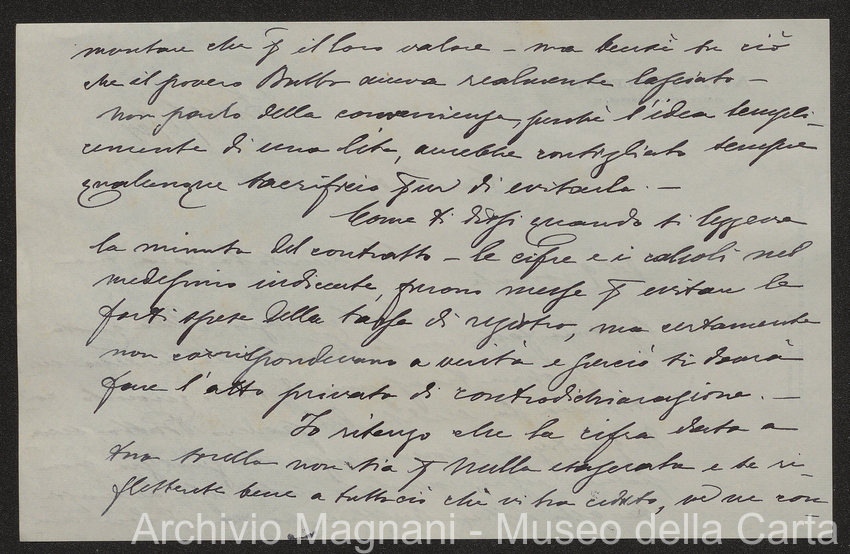 montare che p il loro valore – ma bensì su ciò
che il povero Babbo aveva realmente lasciato –
non parlo della convenienza, perché l'idea sempli-
cemente di una lite, avrebbe consigliato sempre
qualunque sacrificio pur di evitarla. –
Come ti dissi quando ti leggevo
la minuta del contratto – le cifre e i calcoli nel
medesimo indicate, furono messe p evitare le
forti spese della tassa di registro, ma certamente
non corrispondevano a verità e perciò si dovrà
fare l'atto privato di controdichiarazione. –
Io ritengo che la cifra data a
tua sorella non sia p nulla esagerata e se ri-
flettete bene a tutto ciò che vi ha ceduto, ve ne con-
Archivio Magnani - Museo della Carta